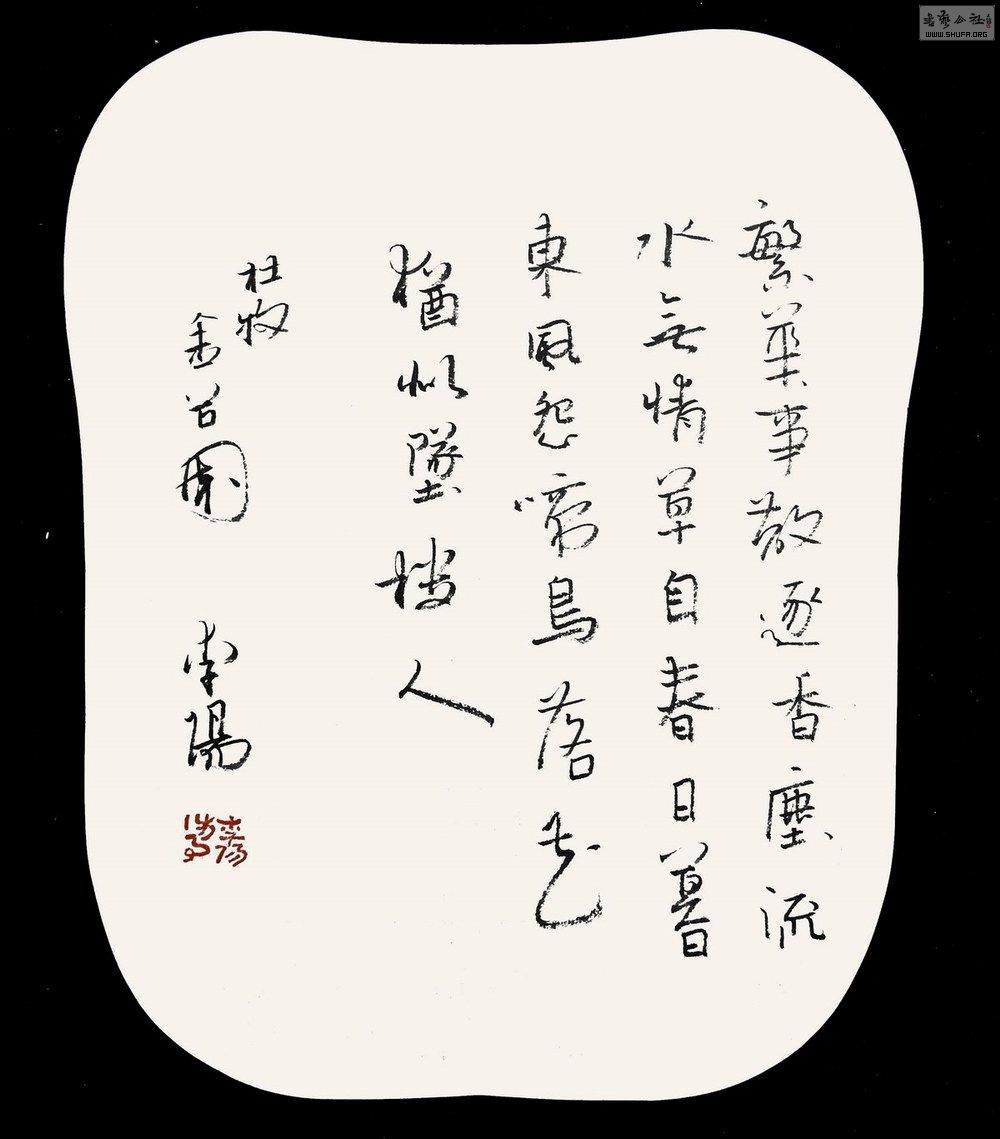 繁華事散逐香塵流
水無情草自春日暮
東風怨啼鳥落花
猶似墜樓人
杜牧
金谷園 李陽
書藝公社
WWW.SHUFA.ORG